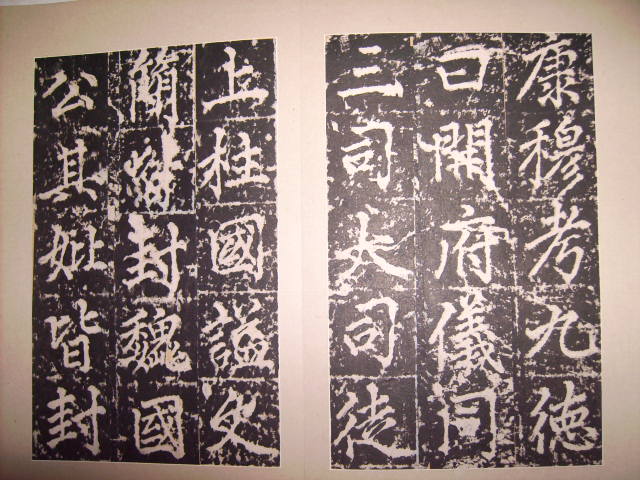 康穆考九德
曰開府儀同
三司大司徒
上柱國謚文
簡封魏國
公其妣皆封